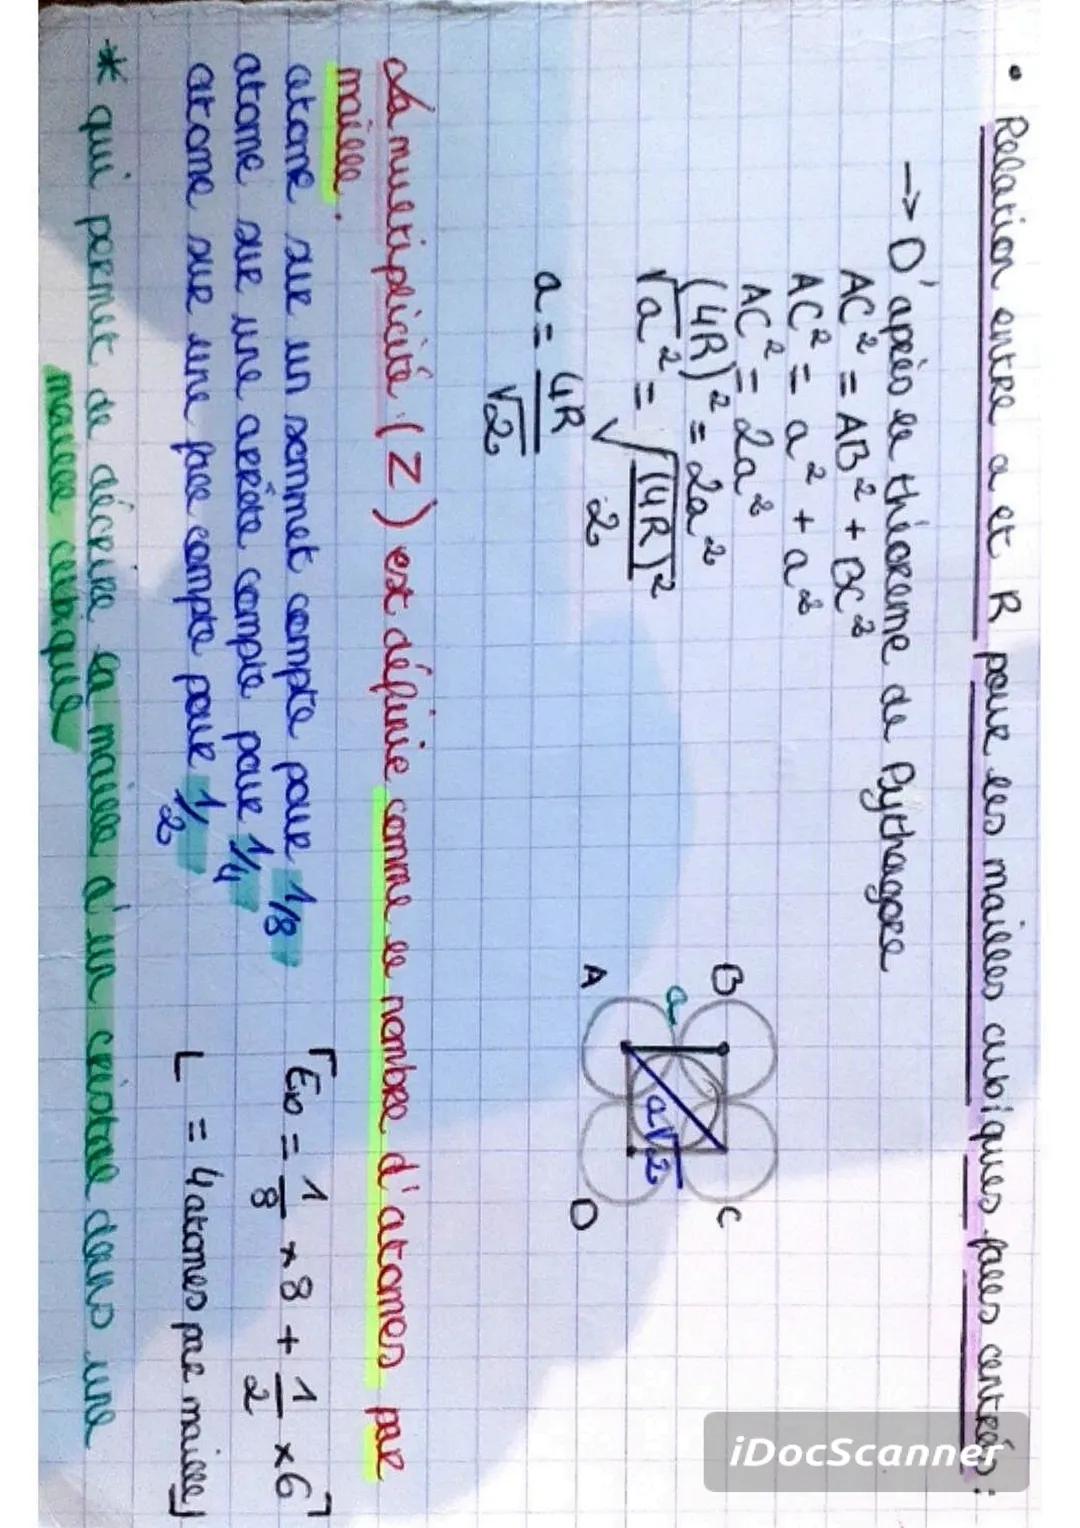 • Relation entre a et R pour les mailles cubiques faces centrés :
→ D'après le théoreme de Pythagore
AC² = AB² + BC²
AC² = a² + a²
AC² = 2a²
(4R)² = 2a²
√a² = √(4R)²/2
a = 4R/√2
B
C
a
a√2
A
D
La multiplicité (Z) est définie comme le nombre d'atomes par
maille.
atome sur un sommet compte pour 1/8
atome sur une arrête compte pour 1/4
atome sur une face compte pour 1/2
= 1/8 × 8 + 1/2 × 6
= 4 atomes par maille
* qui permet de décrire la maille d'un cristal dans une
maille cubique
iDocScanner